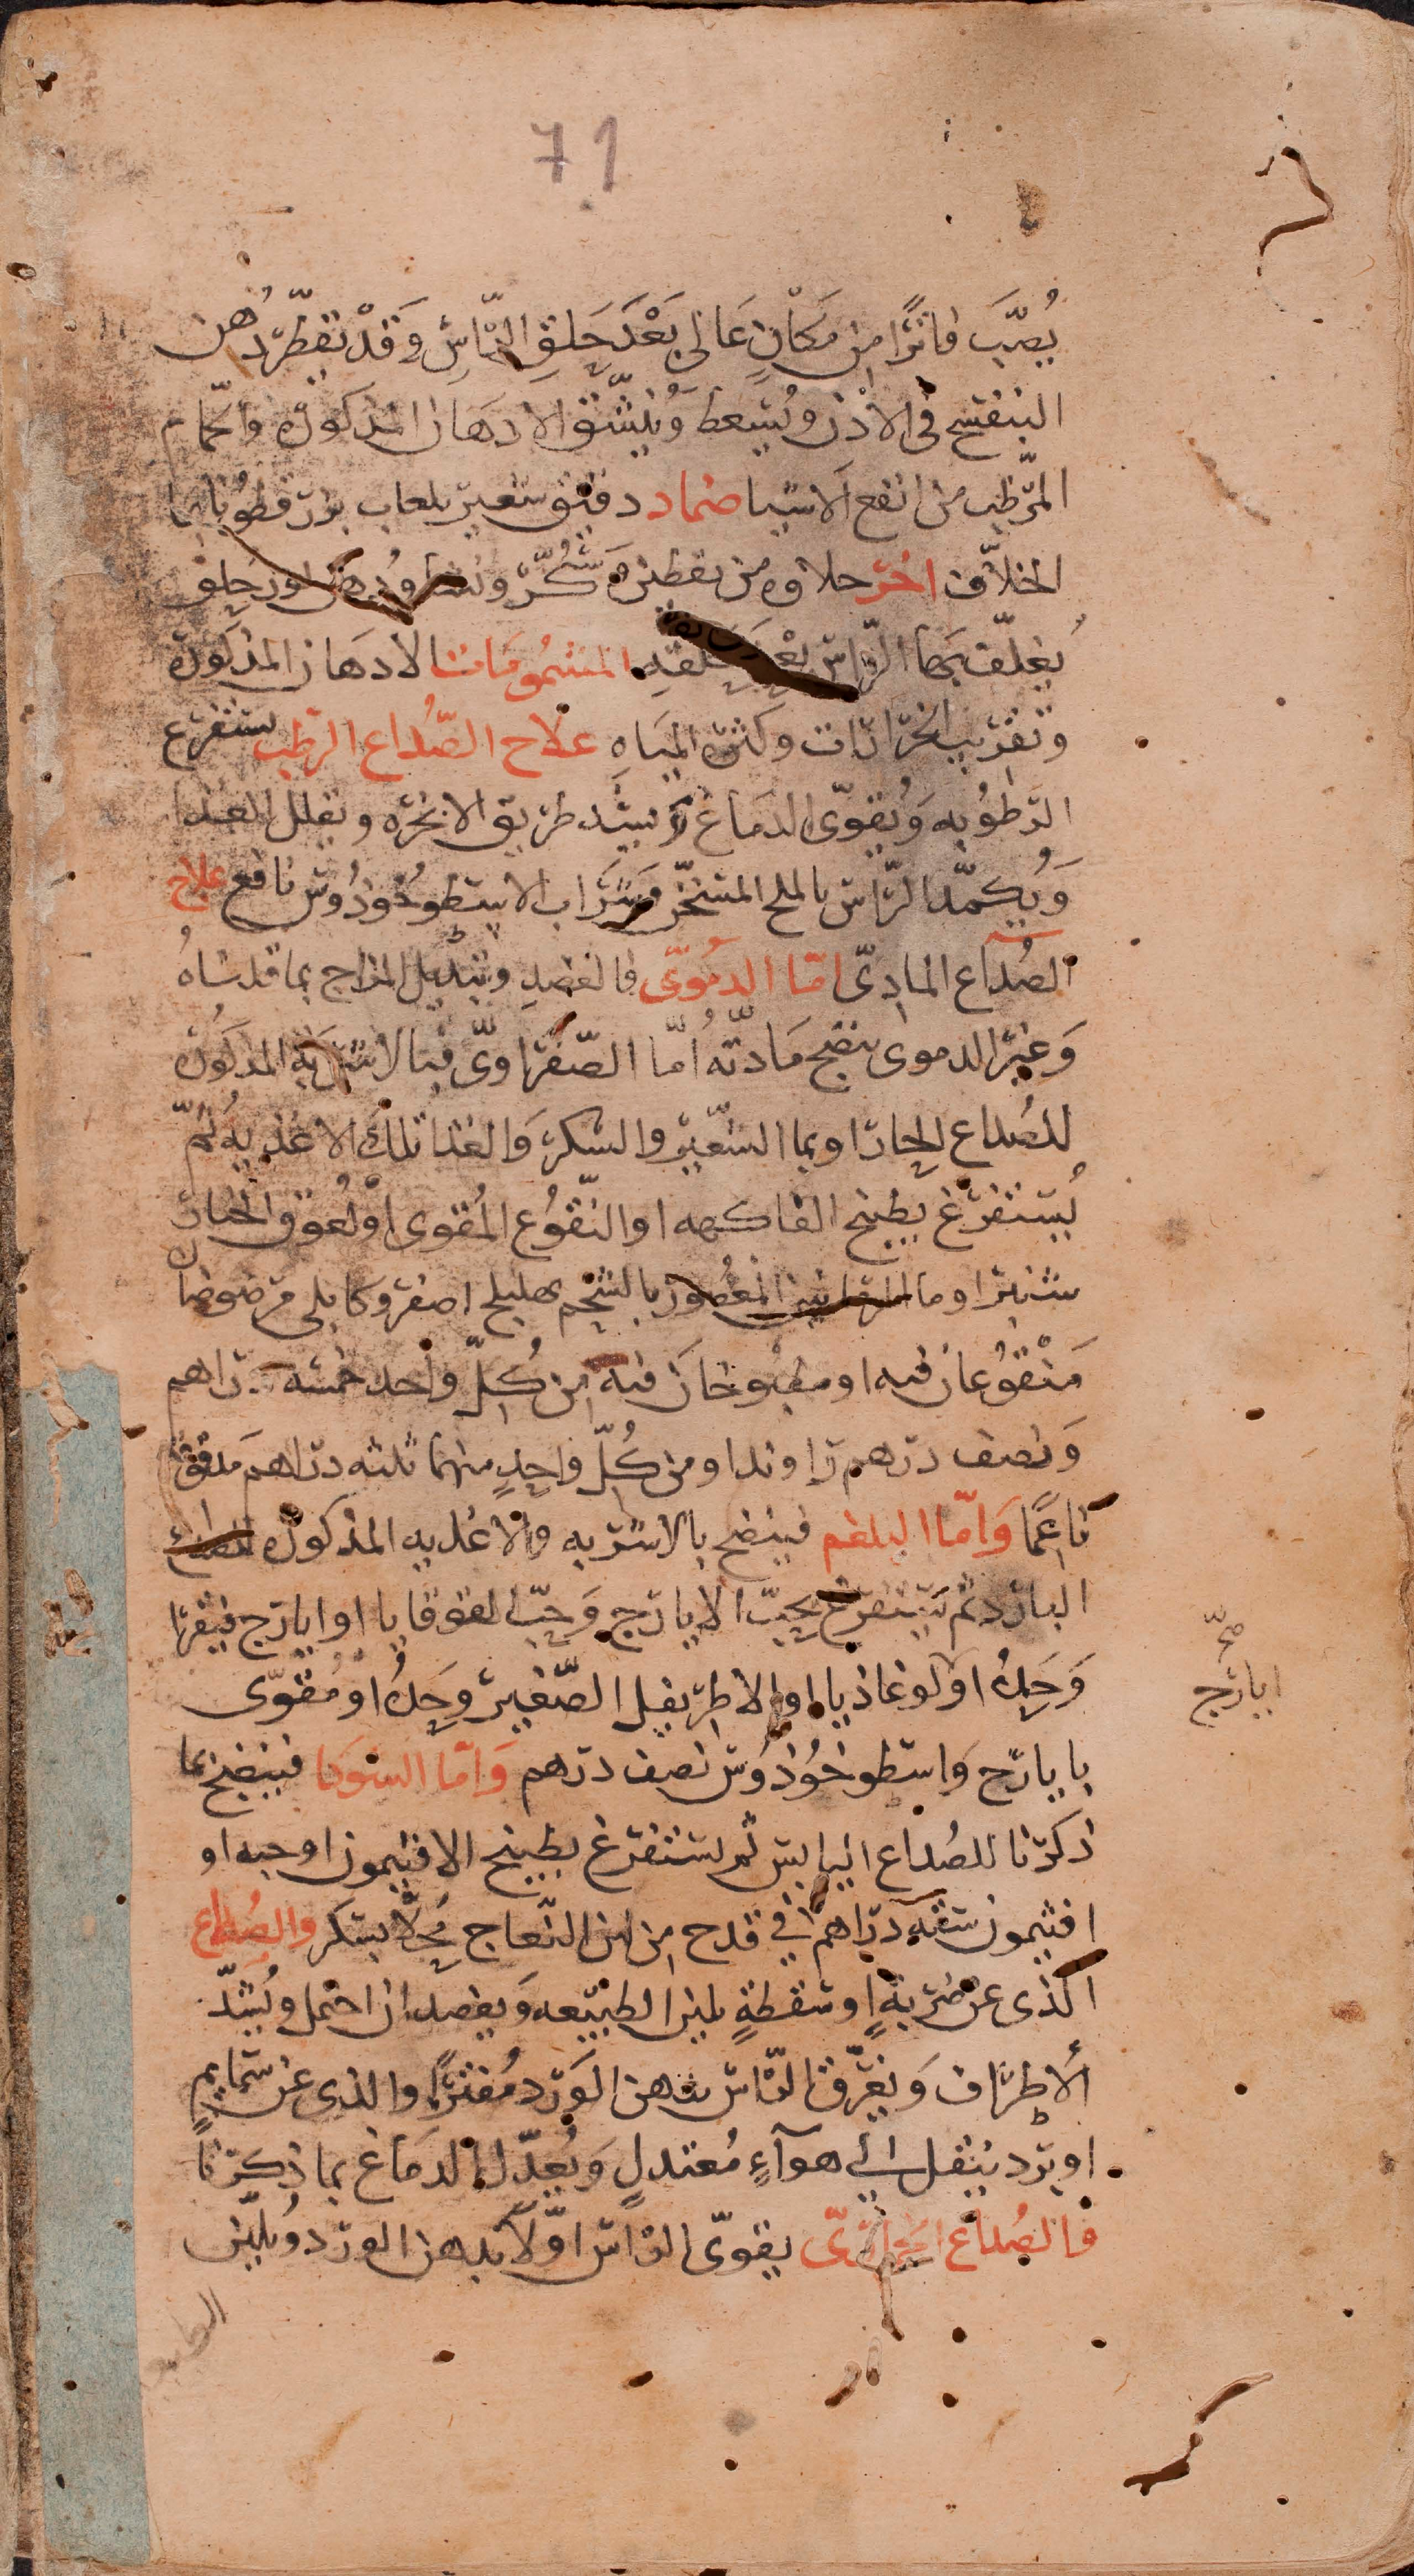 71
يُصَبَّ فاترًا من مَكَانٍ عَالى بَعْدَ حَلقِ الرّاسِ وَقَدْ تقطّر دُهن
البنفسج فى الاذن ويُسعط وَيُنشّق الادهان المذكوره والحمّام
المرّطب من انفع الاشيا ضماد دقيق شعير بلعاب بزر قطونا بما
الخلاف اخر حلاوه من يقطين وَسُكّر ودهن لوز حلو
يُغلّف بها الرّاس بعد حلقه المشمُومَات الادهان المذكوره
وتقريب الخرّارات وكثره المياه علاج الصُّداع الرطب يستفرغ
الرطُوبه وَيُقوّى الدمَاغ وَيسَد طريق الابخره ويقلل الغذا
وَيُكمّد الرّاس بالملح المسخّن وَشَراب الاسطوخوذُوس نافع علاج
الصُدَاع المادىّ امّا الدمُوىّ فالفصدِ وتبديل المزاج بما قدمناهُ
وَغيرُ الدموى بنضج مَادّته أمّا الصّفراوىّ فبالاشربه المذكوره
للصُداع الحار او بما الشعير والسكر وَالغذا تلك الاغذيه ثمّ
يُستفرغ بطبيخ الفاكهه او النّقوُع المُقوى او لعُوق الخيار
شنبر او ما الرمانين المعصور بالشحم بهليلج اصفر وكابلى مرضوضان
مَنْقوُعان فيه او مطبوخان فيه من كُلّ واحد خمسه دراهم
وَنصف درهم راوند او من كُلّ واحِدٍ منهما ثلثه دراهم مَدقوقه
نَاعمًا وَامّا البلغم فينضج بالاشربه والاغذيه المذكوره للصداع
البارد ثم يَستفرغ بحبّ الايارج وَحبّ القوقايا او ايارج فيقرا
وَحدهُ او لوغاذيا او الاطريفل الصّغير وَحدهُ او مُقوّى
بايارج وَاسطوخوُذوُس نصف درهم وَامّا السّودَا فينضج بما
ذكرنا للصُداع اليابس ثم يستفرغ بطبيخ الافتيمون او حبه او
افتيمون ستّه دراهم فى قدح من لبن النّعاج مُحلّا بسكر والصُداع
الّذى عن ضَربةٍ او سَقطةٍ يلين الطبيّعه وَيفصد ان احتمل ويُشدّ
الأطرَاف وَيغرّق الرّاس بدهن الوَرد مُفترًا والذى عن سَمايم
او برد ينقل الى هوآءٍ مُعتدلٍ وَيُعدّل الدمَاغ بما ذكَرنا
فالصُداع الخمارىّ يقوّى الرّاس اوّلاً بدهن الورد ويُلين
ايارج
صحّ